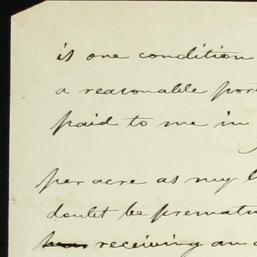 is one condition
a reasonable por
paid to me in
per acre as my l
doubt be prematu
receiving an a